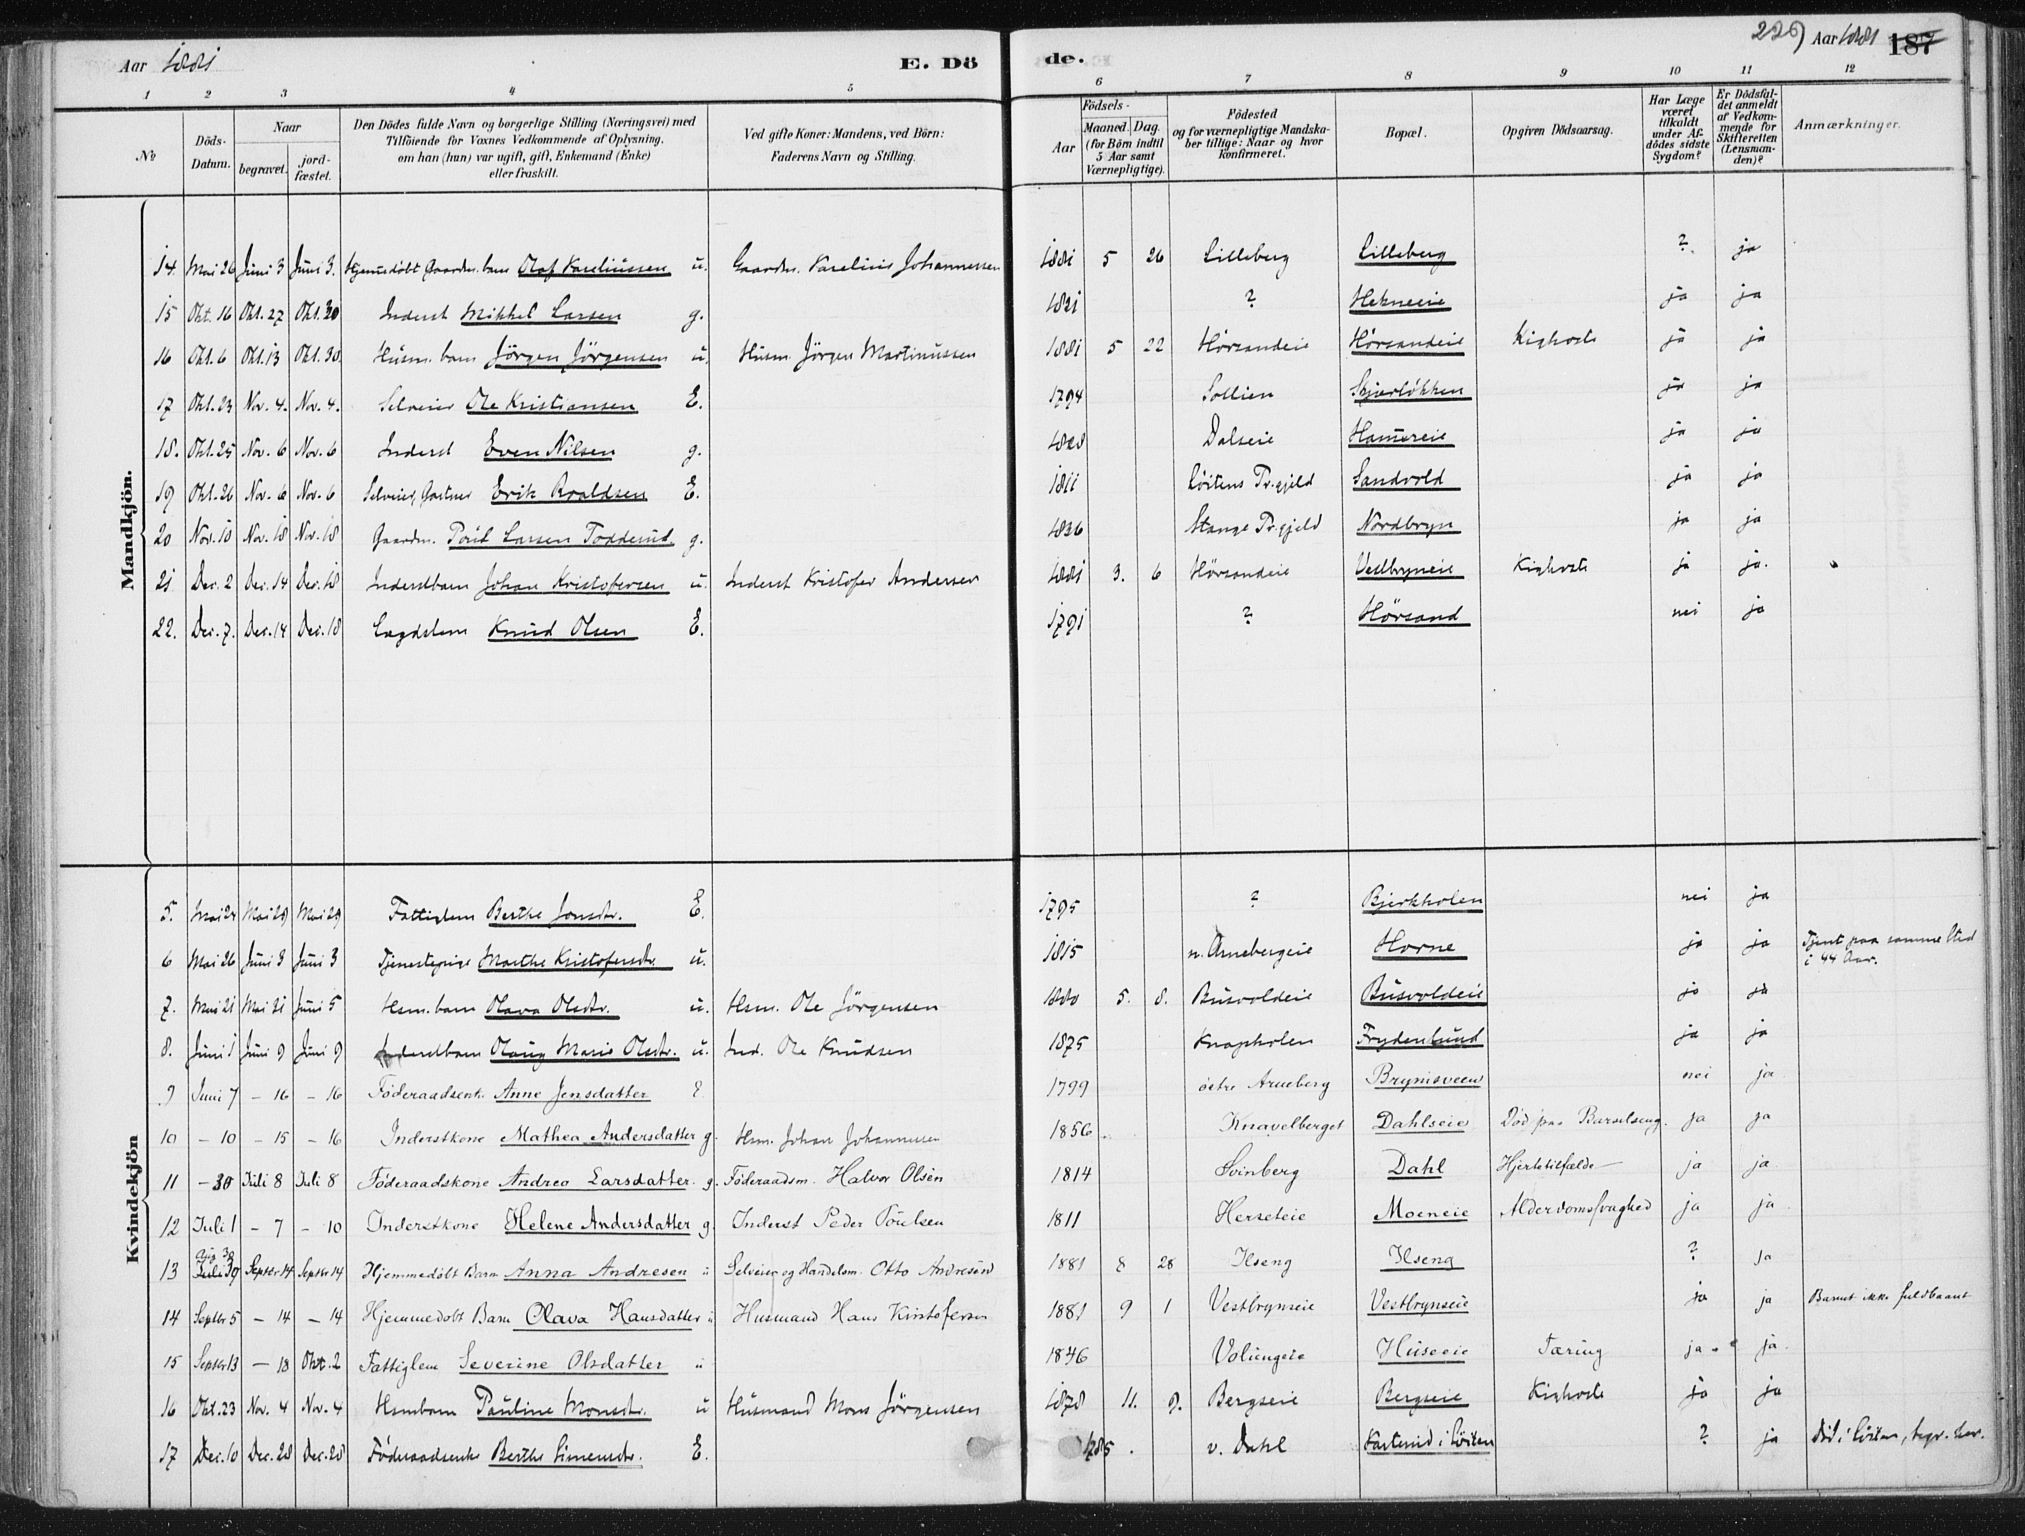 Aar 1881 E. Dö
de. 229 Aar 1881 187
1 2 3 4 5 6 7 8 9 10 11 12
No
Döds-Datum.
Naar
begravet.
jord-fæstet.
Den Dödes fulde Navn og borgerlige Stilling (Næringsvei) med
Tilföiende for Voxnes Vedkommende af Oplysning,
om han (hun) var ugift, gift, Enkemand (Enke)
eller fraskilt.
Ved gifte Koner: Mandens, ved Börn:
Faderens Navn og Stilling.
Födsels-
Aar
Maaned. Dag.
(for Börn indtil
5 Aar samt
Værnepligtige).
Födested
og for værnepligtige Mandska-
ber tillige: Naar og hvor
konfirmeret.
Bopæl.
Opgiven Dödsaarsag.
Har Læge
været
tilkaldt
under Af-
dödes sidste
Sygdom?
Er Dödsfal-
det anmeldt
af Vedkom-
mende for
Skifteretten
(Lensman-
den)?
Anmærkninger.
Mandkjön.
14. Mai 26 Juni 3 Juni 3. Hjemmedöbt Gaardm. barn Olaf Kareliussen u. Gaardm. Karelius Johannessen 1881 5 26 Lilleberg Lilleberg ? ja
15 Okt. 16 Okt. 27 Okt. 30 Inderst Mikkel Larsen g. 1821 ? Hekneeie ja ja
16 Okt. 6 Okt. 13 Okt. 30. Husm. barn Jörgen Jörgensen u. Husm. Jörgen Martinussen 1881 5 22 Hörsandeie Hörsandeie Kighoste ja ja
17 Okt. 23 Nov. 4. Nov. 4. Selveier Ole Kristiansen E. 1794 Sollien Skjærlökken ja ja
18. Okt. 25 Nov. 6 Nov. 6 Inderst Even Nilsen g. 1828 Dalseie Hamereie ja ja
19 Okt. 26 Nov. 6 Nov. 6 Selveier, Gartner Erik Roaldsen E. 1811 Löitens Pr.gjeld Sandvold ja ja
20 Nov. 10 Nov. 18 Nov. 18 Gaardm. Poul Larsen Todderud g. 1836 Stange Pr.gjeld Nordbryn ja ja
21 Dec. 2 Dec. 14 Dec. 18 Inderstbarn Johan Kristofersen u. Inderst Kristofer Andersen 1881 3. 6 Hörsandeie Vestbryneie Kighoste ja ja.
22. Dec. 7. Dec. 14 Dec. 18 Lægdslem Knud Olsen E. 1791 ? Hörsand nei ja
Kvindekjön
5. Mai 24 Mai 29 Mai 29 Fattiglem Berthe Jonsdtr. E. 1795 ? Bjerkholen nei ja
6 Mai 26 Juni 3 Juni 3 Tjenestepige Marthe Kristofersdtr. u. 1815 n. Arnebergeie Horne ja ja Tjent paa samme Sted
i 44 Aar.
7. Mai 21 Mai 21 Juni 5 Hsm. barn Olava Olsdtr. u. Hsm. Ole Jörgensen 1880 5. 8. Busvoldeie Busvoldeie ja ja
8. Juni 1 Juni 9 Juni 9 Inderstbarn Olaug Marie Olsdtr. u. Ind. Ole Knudsen 1875 Knapholen Frydenlund ja ja
9 Juni 7 - 16 - 16 Föderaadsenk. Anne Jensdatter E 1799 östre Arneberg Brynisveen nei ja
10 - 10 - 15 - 16 Inderstkone Mathea Andersdatter g. Hsm. Johan Johannessen 1856 Knavelberget Dahlseie Död paa Barselseng. ja ja
11 - 30 Juli 8 Juli 8 Föderaadskone Andrea Larsdatter. g. Föderaadsm. Halvor Olsen 1814 Svinberg Dahl Hjertetilfælde ja ja
12 Juli 1 - 7 - 10 Inderstkone Helene Andersdatter g. Inderst Peder Poulsen 1811 Herseteie Moeneie Alderdomssvaghed ja ja
13 Aug. 30 Septbr 14 Septbr 14 Hjemmedöbt Barn Anna Andresen u Selveier og Handelsm. Otto Andresen 1881 8 28 Ilseng Ilseng ? ja
14 Septbr 5 - 14 - 14 Hjemmedöbt Barn Olava Hansdatter u Husmand Hans Kristofersen 1881 9 1 Vestbrynseie Vestbrynseie ja ja Barnet ikke fuldbaaret
15 Septbr 13 - 18 Okt. 2 Fattiglem Severine Olsdatter u 1846 Volungeie Huseeie Tæring ja ja.
16 Okt. 23 Nov. 4 Nov. 4 Hsmbarn Pauline Monsdtr. u Husmand Mons Jörgensen 1878 11. 9. Bergseie Bergseie Kighoste ja ja
17 Dec. 10 Dec. 28 Dec. 28 Föderaadsenke Berthe Simensdtr. E. 1785 v. Dahl Kasterud i Löiten ? ja Död i Löiten, begr. her.